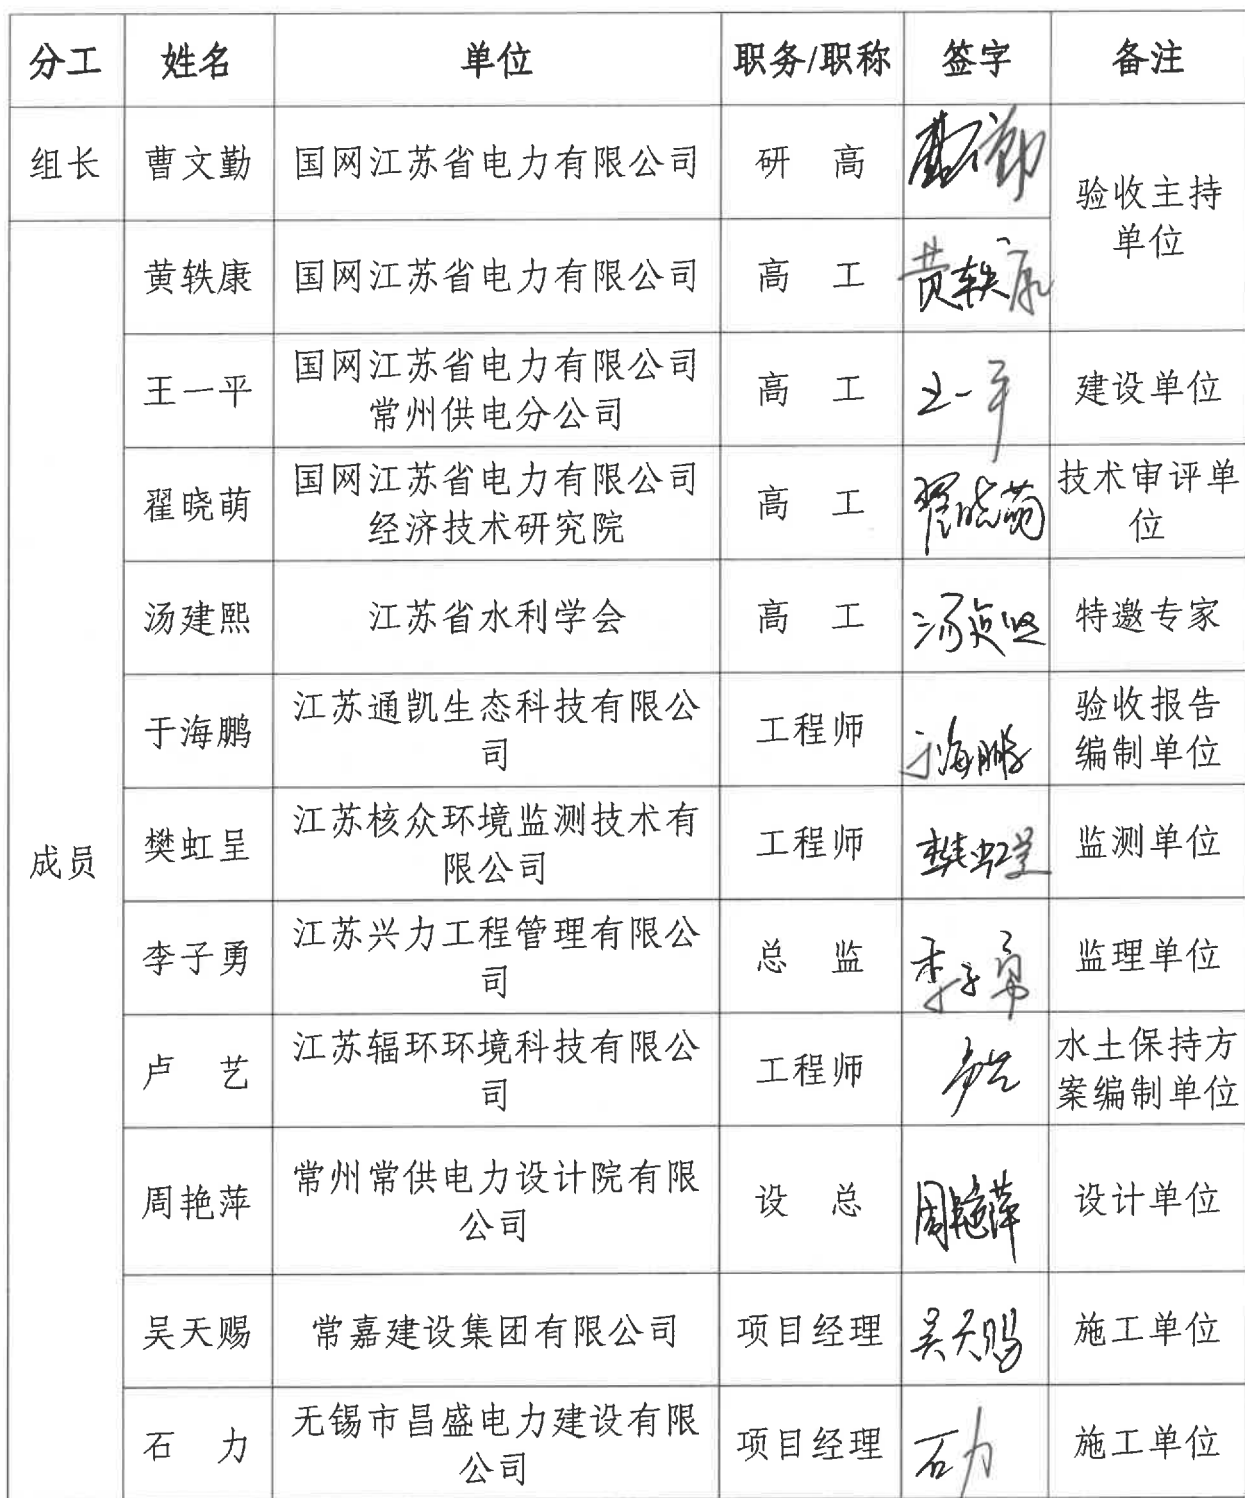 分工 姓名 单位 职务/职称 签字 备注
组长 曹文勤 国网江苏省电力有限公司 研 高 曹文勤 验收主持
单位
成员 黄轶康 国网江苏省电力有限公司 高 工 黄轶康
王一平 国网江苏省电力有限公司
常州供电分公司 高 工 王一平 建设单位
翟晓萌 国网江苏省电力有限公司
经济技术研究院 高 工 翟晓萌 技术审评单
位
汤建熙 江苏省水利学会 高 工 特邀专家
于海鹏 江苏通凯生态科技有限公
司 工程师 于海鹏 验收报告
编制单位
樊虹呈 江苏核众环境监测技术有
限公司 工程师 樊虹呈 监测单位
李子勇 江苏兴力工程管理有限公
司 总 监 李子勇 监理单位
卢 艺 江苏辐环环境科技有限公
司 工程师 卢艺 水土保持方
案编制单位
周艳萍 常州常供电力设计院有限
公司 设 总 周艳萍 设计单位
吴天赐 常嘉建设集团有限公司 项目经理 吴天赐 施工单位
石 力 无锡市昌盛电力建设有限
公司 项目经理 石力 施工单位